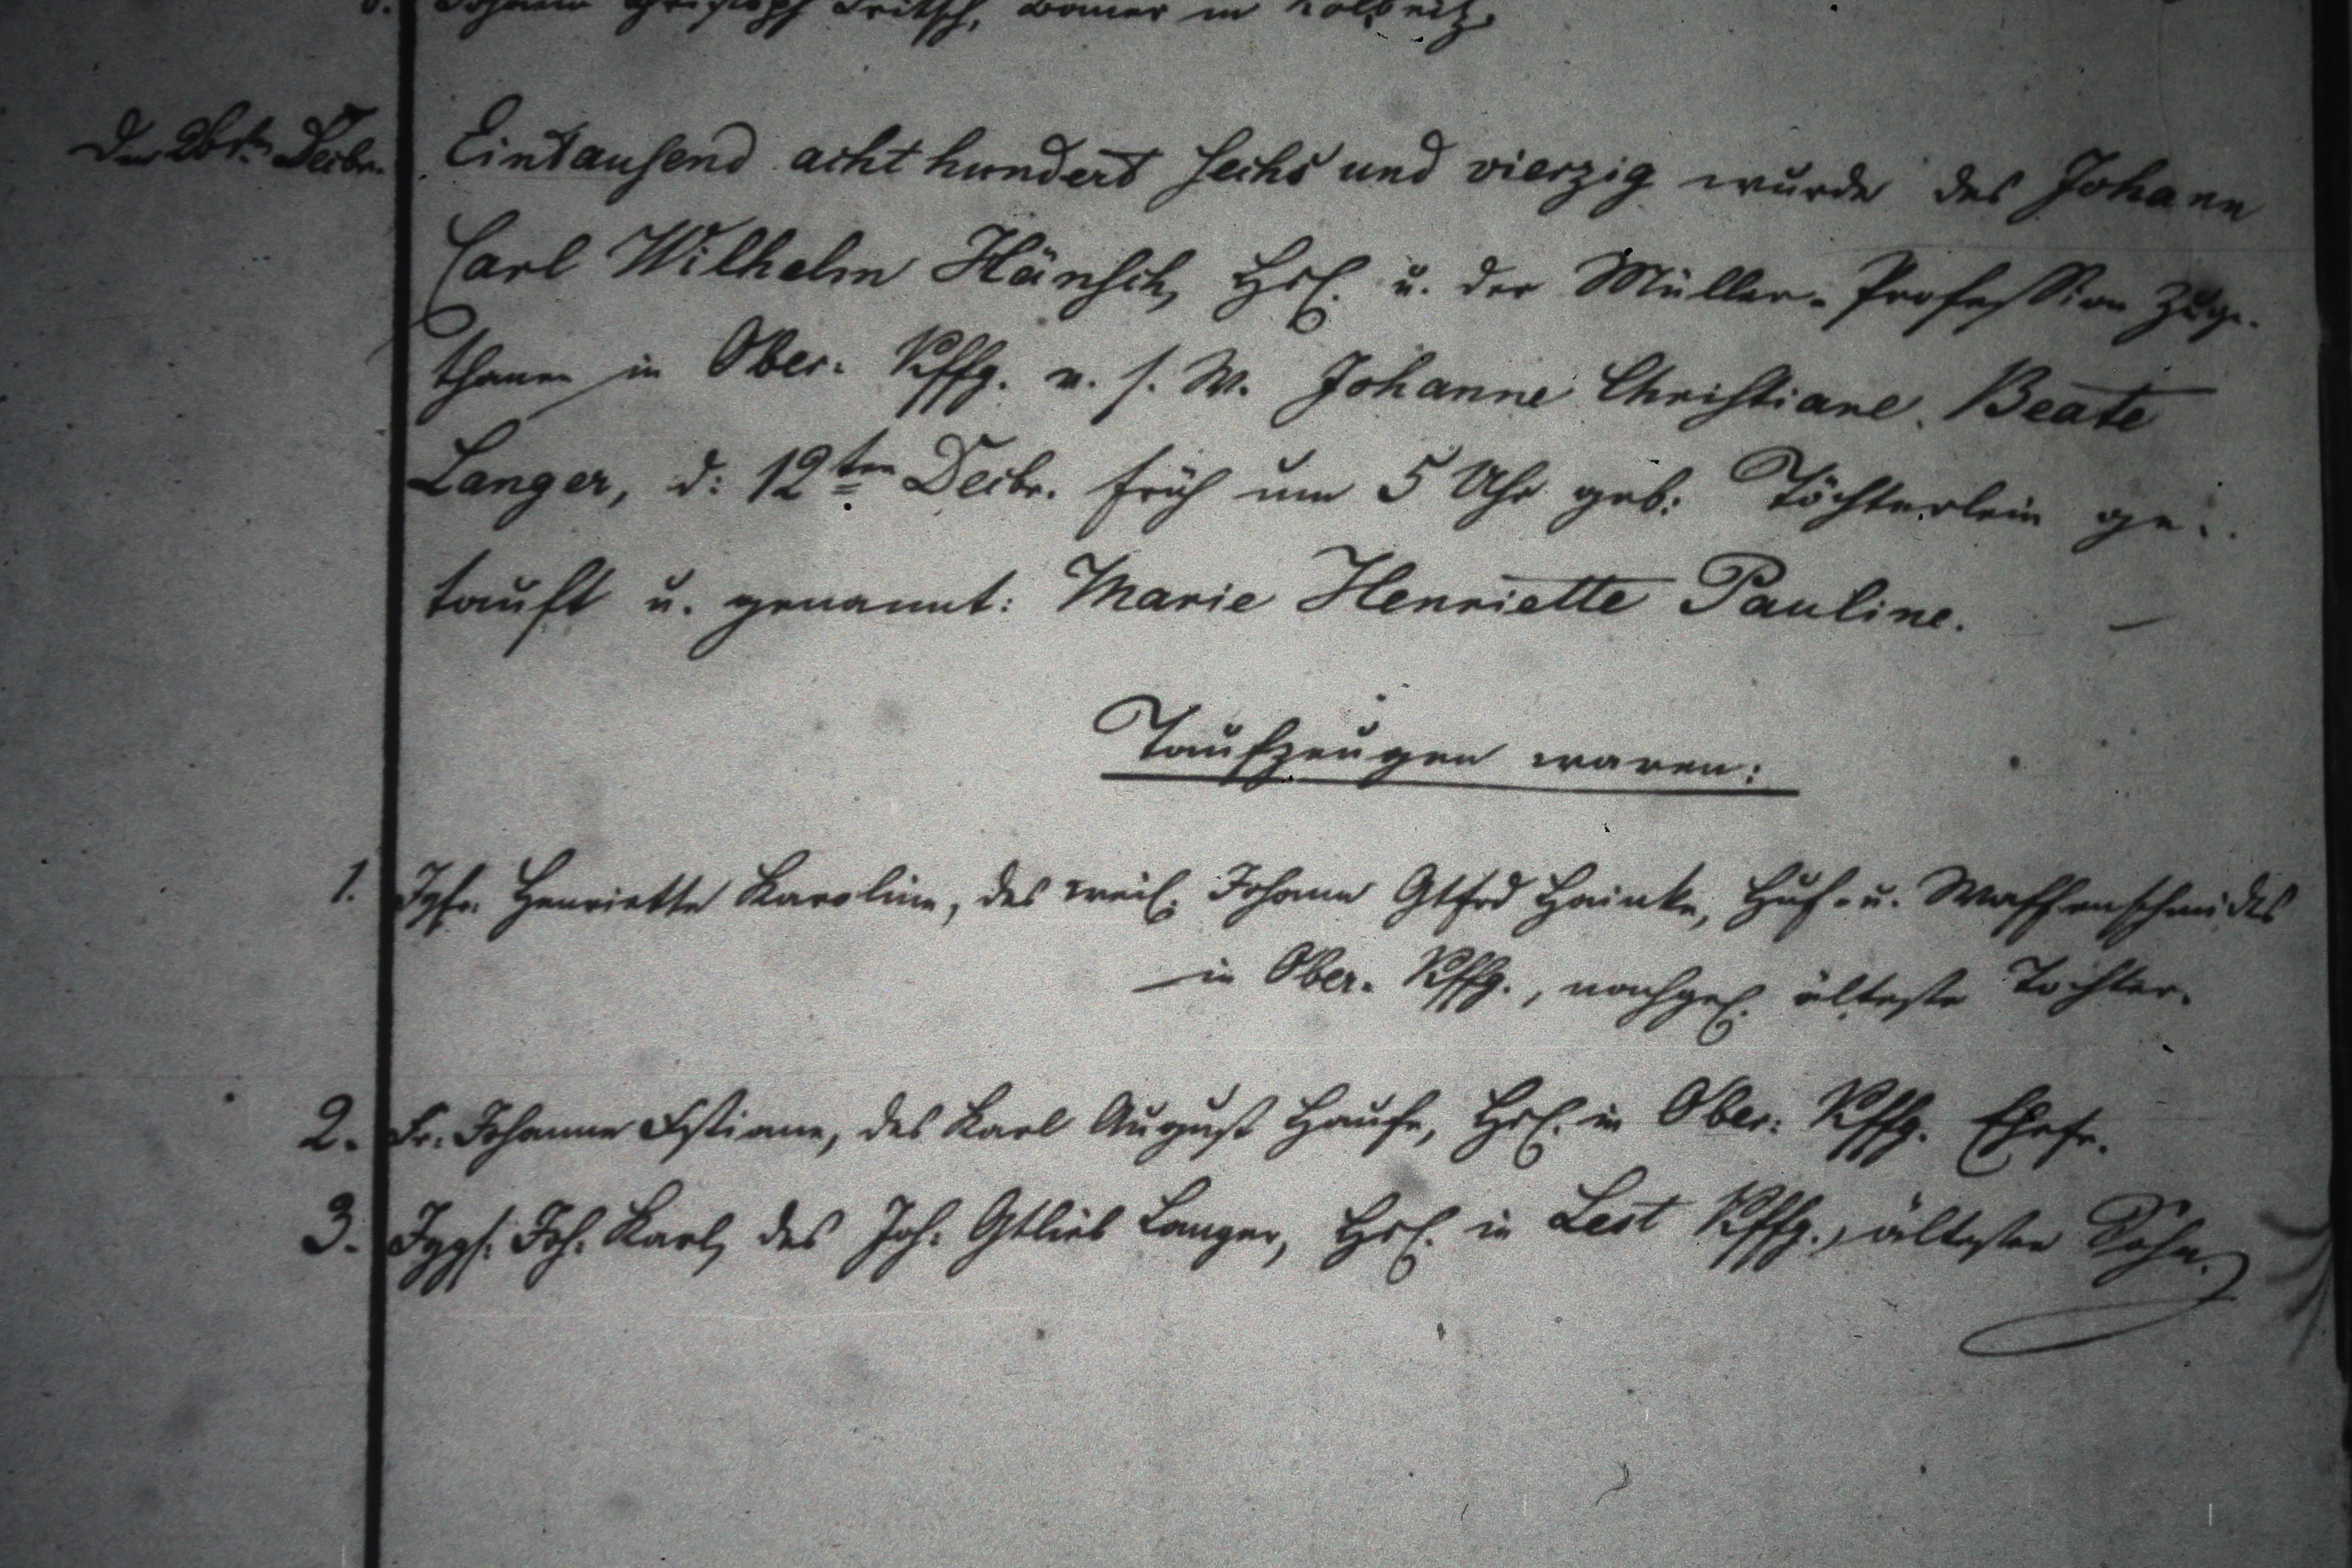 Johann Christoph Fritsch, Bauer in Kolbnitz.
Den 26sten Decbr. Eintausend acht hundert sechs und vierzig wurde des Johann
Carl Wilhelm Hänsch, Hsl. u. der Müller-Profession zuge-
thanen in Ober-Kffg. u. s. W. Johanne Christiane Beate
Langer, d: 12ten Decbr. früh um 5 Uhr geb: Töchterlein ge-
tauft u. genannt: Marie Henriette Pauline. —
Taufzeugen waren:
1. Jgfr. Henriette Karoline, des weil. Johann Gtfrd Hainke, Huf- u. Waffenschmides
in Ober-Kffg., nachgel. älteste Tochter.
2. Fr. Johanne Chstiane, des Karl August Haufe, Hsl. in Ober-Kffg. Ehefr.
3. Jggs. Joh. Karl, des Joh. Gtlieb Langer, Hsl. in Lest Kffg., ältester Sohn.